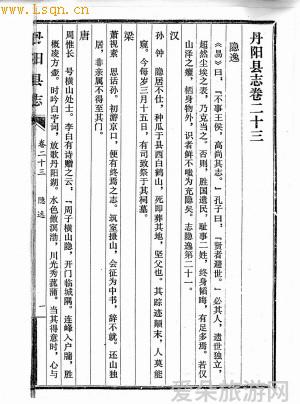 www.Lsqn.cn
丹阳县志卷二十三
隐逸
《易》曰，“不事王侯，高尚其志。”孔子曰，“贤者避世。”必其人，遗世独立，
超然尘埃之表，乃克当之。否则，胜国遗民，耻事二姓，终身韬晦，有足多焉。若仅
山泽之癯，栖身物外，识者鲜不嗤为充隐矣。志隐逸第二十一。
汉
孙钟 隐居不仕，种瓜于县西白鹤山，死即葬其地，坚父也。其踪迹颠末，人莫能
窥。今每岁三月十五日，有司致祭于其祠墓。
梁
萧视素 思话孙。初游京口，便有终焉之志。筑室摄山，会征为中书，辞不就。还山独
居，非亲属不得至其门。
唐
周惟长 号横山处士。李白有诗赠之云，“周子横山隐，开门临城隅。连峰入户牖，胜
概凌方壶。时吟白苎词，放歌丹阳湖。水色傲溟渤，川光秀菰蒲。当其得意时，心与
丹阳县志
卷二十三 隐逸
一
爱采旅游网